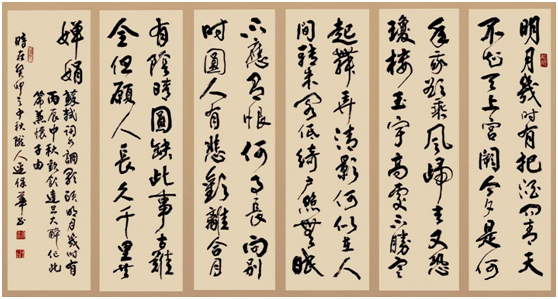 明月幾時有把酒問青天
不知天上宮闕今夕是何
年我欲乘風歸去又恐
瓊樓玉宇高處不勝寒
起舞弄清影何似在人
間轉朱閣低綺戶照無眠
不應有恨何事長向別
時圓人有悲歡離合月
有陰晴圓缺此事古難
全但願人長久千里共
嬋娟
蘇軾詞水調歌頭明月幾時有
丙辰中秋歡飲達旦大醉作此
篇兼懷子由
時在癸卯之中秋隴人